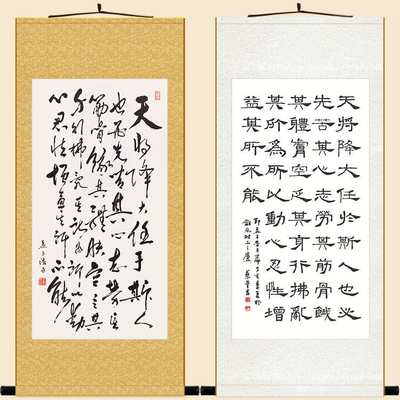 天將降大任于斯人
也必先苦其心志勞其
筋骨餓其體膚空乏其
身行拂亂其所為所以動
心忍性增益其所不能
天將降大任於斯人也必
先苦其心志勞其筋骨餓
其體膚空乏其身行拂亂
其所為所以動心忍性增
益其所不能